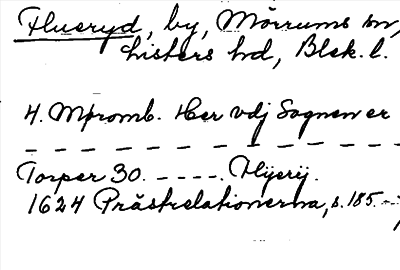 Hueryd, by, Mörrums sn,
Listers hd, Blek. l.
4. Mpromb. Her vdj Sognen er
— — — — — — — — — — — —
Torper 30. - - - - . Hyerij.
1624 Prästrelationerna, s. 185. -